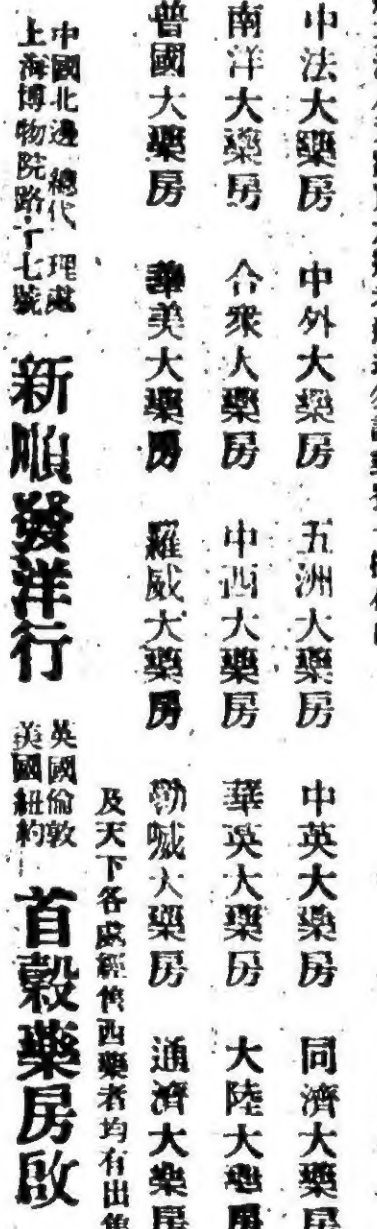 中法大藥房 中外大藥房 五洲大藥房 中英大藥房 同濟大藥房
南洋大藥房 合衆大藥房 中西大藥房 華英大藥房 大陸大藥房
普國大藥房 華美大藥房 羅威大藥房 勒威大藥房 通濟大藥房
及天下各處經售西藥者均有出售
中國北邊總代理處
上海博物院路十七號
新順發洋行
英國倫敦
美國紐約
首穀藥房啟